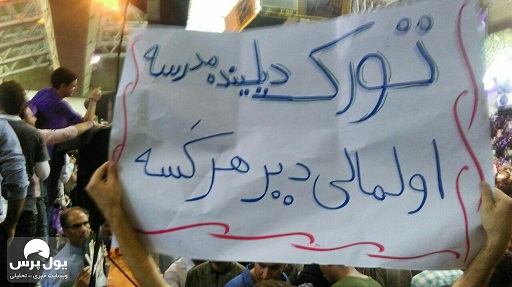 تورک دیلینده مدرسه
اولمالی دیر هر کَسه
یول پرس
وبسایت خبری - تحلیلی